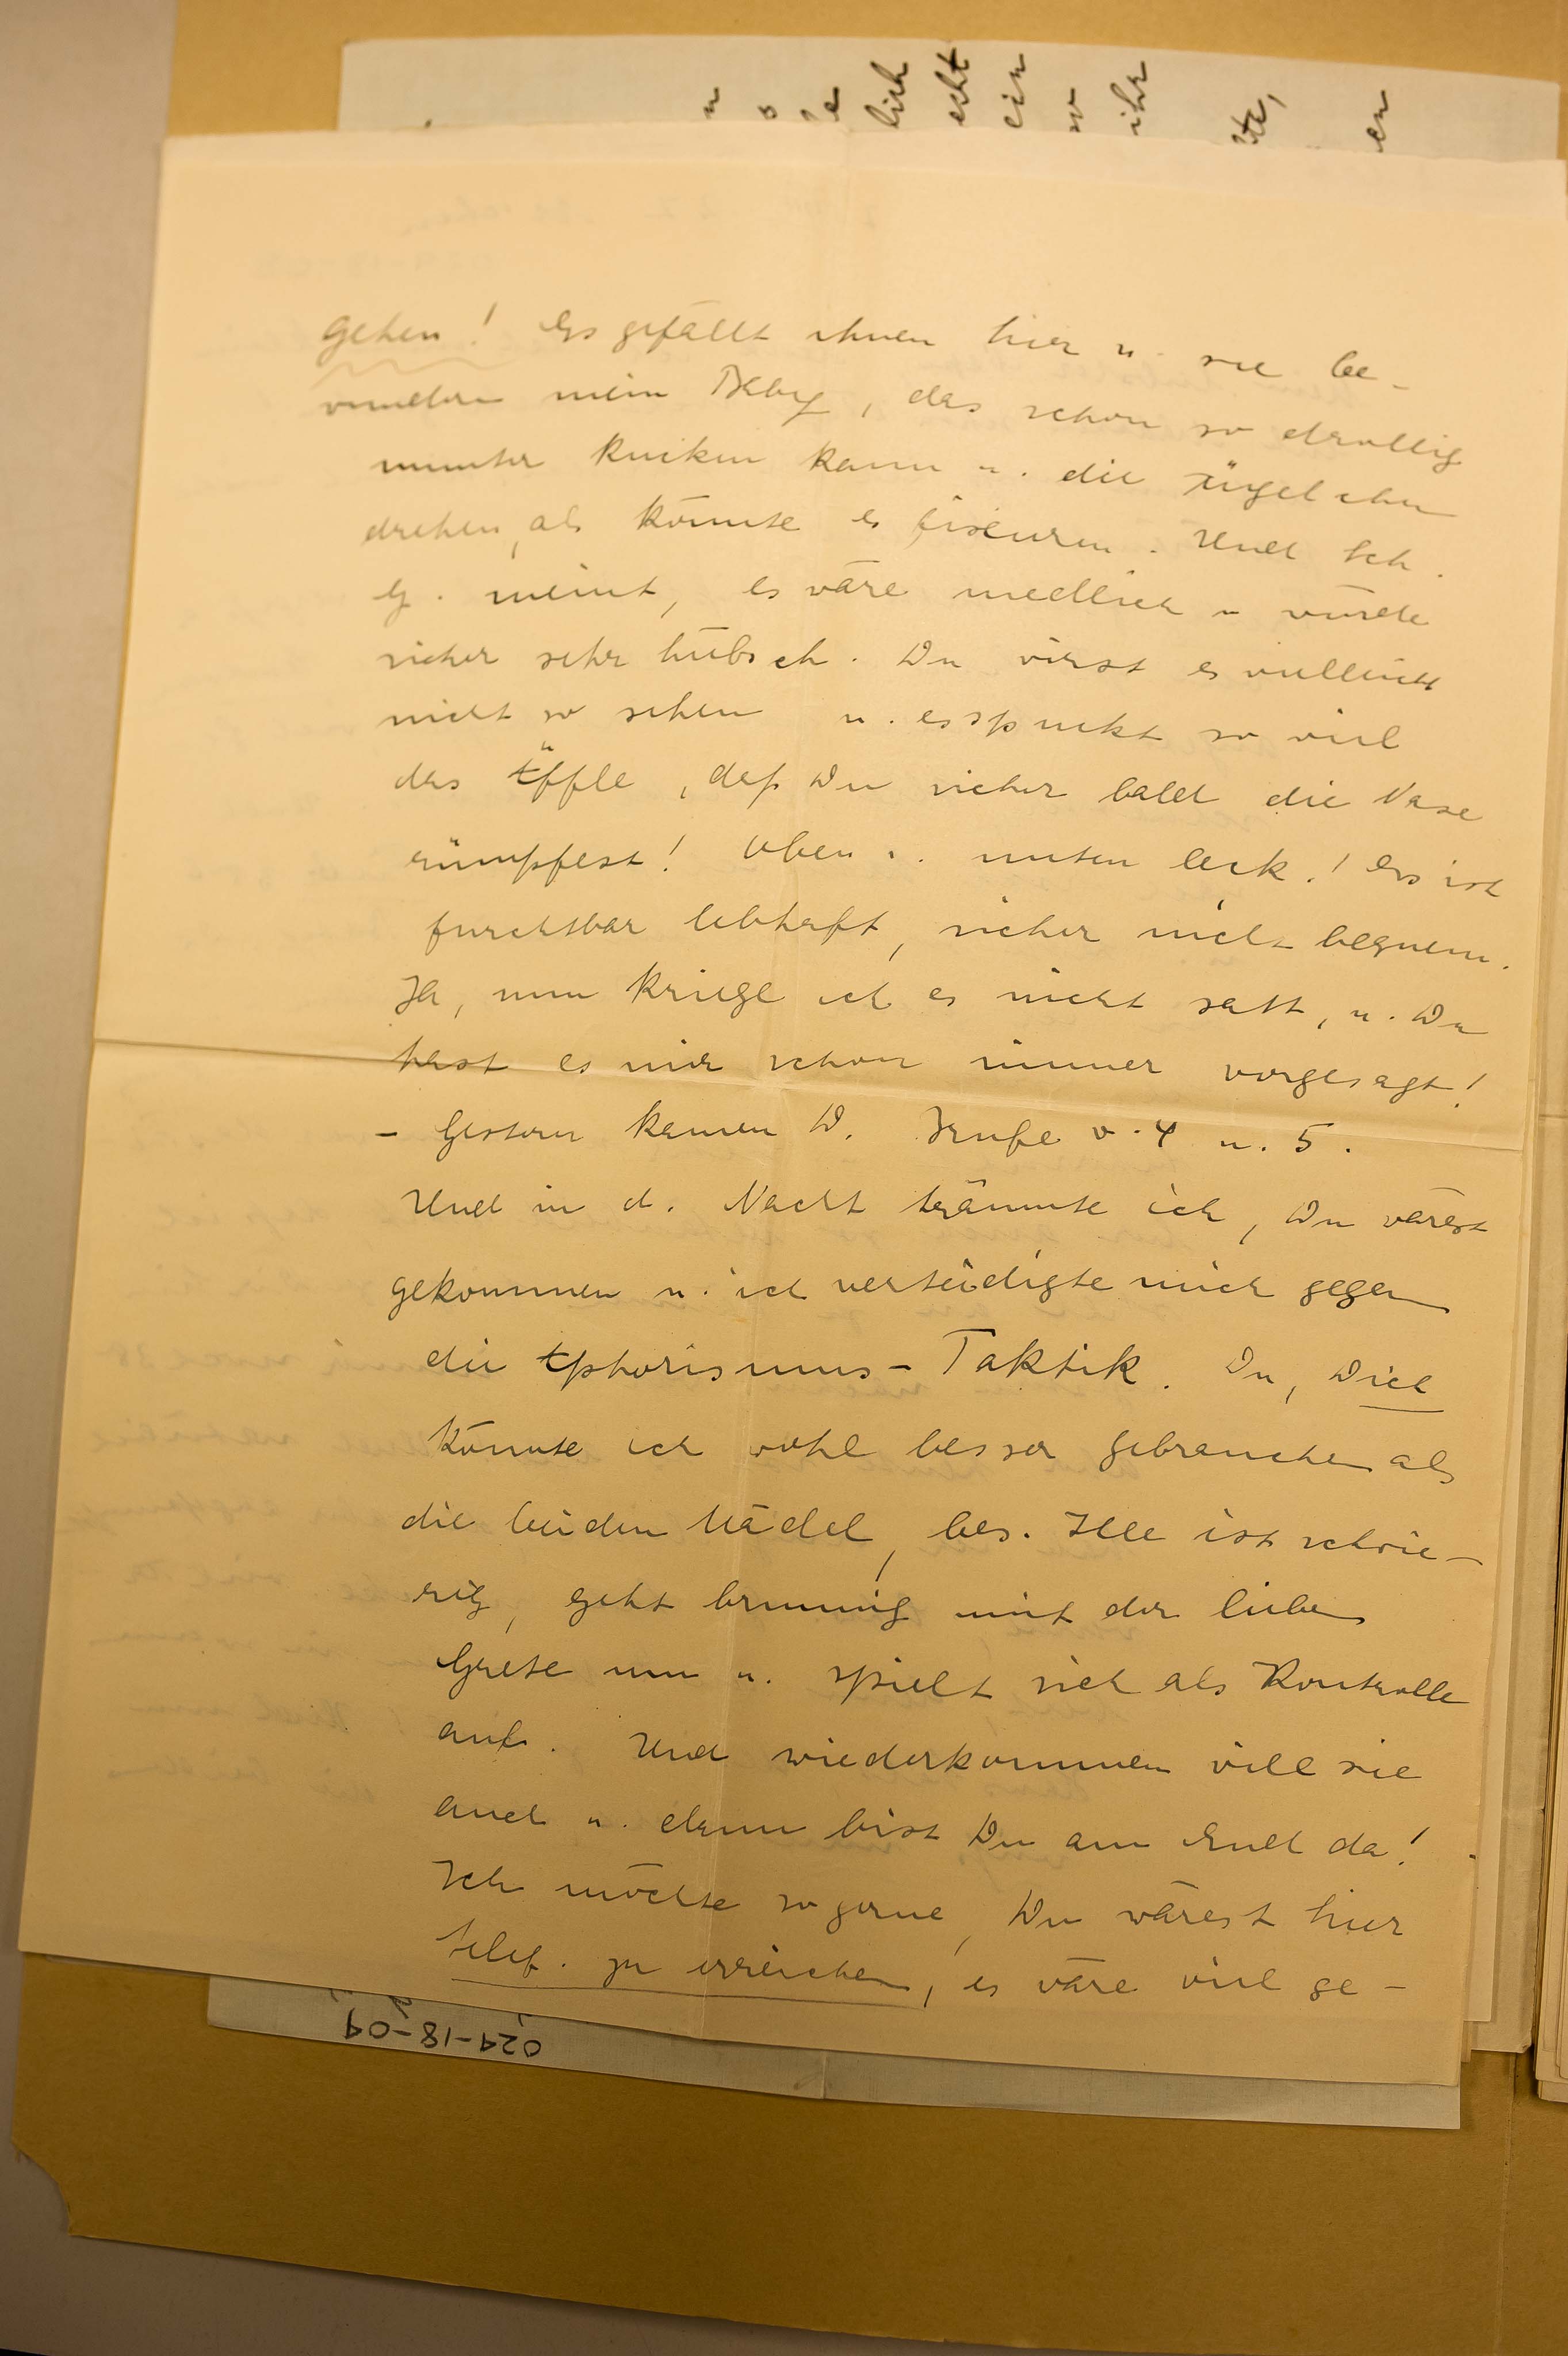 u
o
le
lich
echt
ein
w
ihr
te,
en
gehen! Es gefällt ihnen hier u. sie be-
wundern mein Baby, das schon so drollig
munter kucken kann u. die Äugelchen
drehen, als könnte es fixieren. Und Sch.
G. meint, es wäre niedlich u. würde
sicher sehr hübsch. Du wirst es vielleicht
nicht so sehen u. es spuckt so viel
das Äffle, daß Du sicher bald die Nase
rümpfest! Oben u. unten leck! Es ist
furchtbar lebhaft, sicher nicht bequem.
Ja, nun kriege ich es nicht satt, u. Du
hast es mir schon immer vorgesagt!
- Gestern kamen D. Grüße v. 4 u. 5.
Und in d. Nacht träumte ich, Du wärest
gekommen u. ich verteidigte mich gegen
die Aphorismus-Taktik. Du, Dich
könnte ich wohl besser gebrauchen als
die beiden Mädel, bes. Ille ist schwie-
rig, geht brummig mit der lieben
Grete um u. spielt sich als Kontrolle
auf. Und wiederkommen will sie
auch u. dann bist Du am End da!
Ich möchte so gerne, Du wärest hier
telef. zu erreichen, es wäre viel ge-
024-18-09